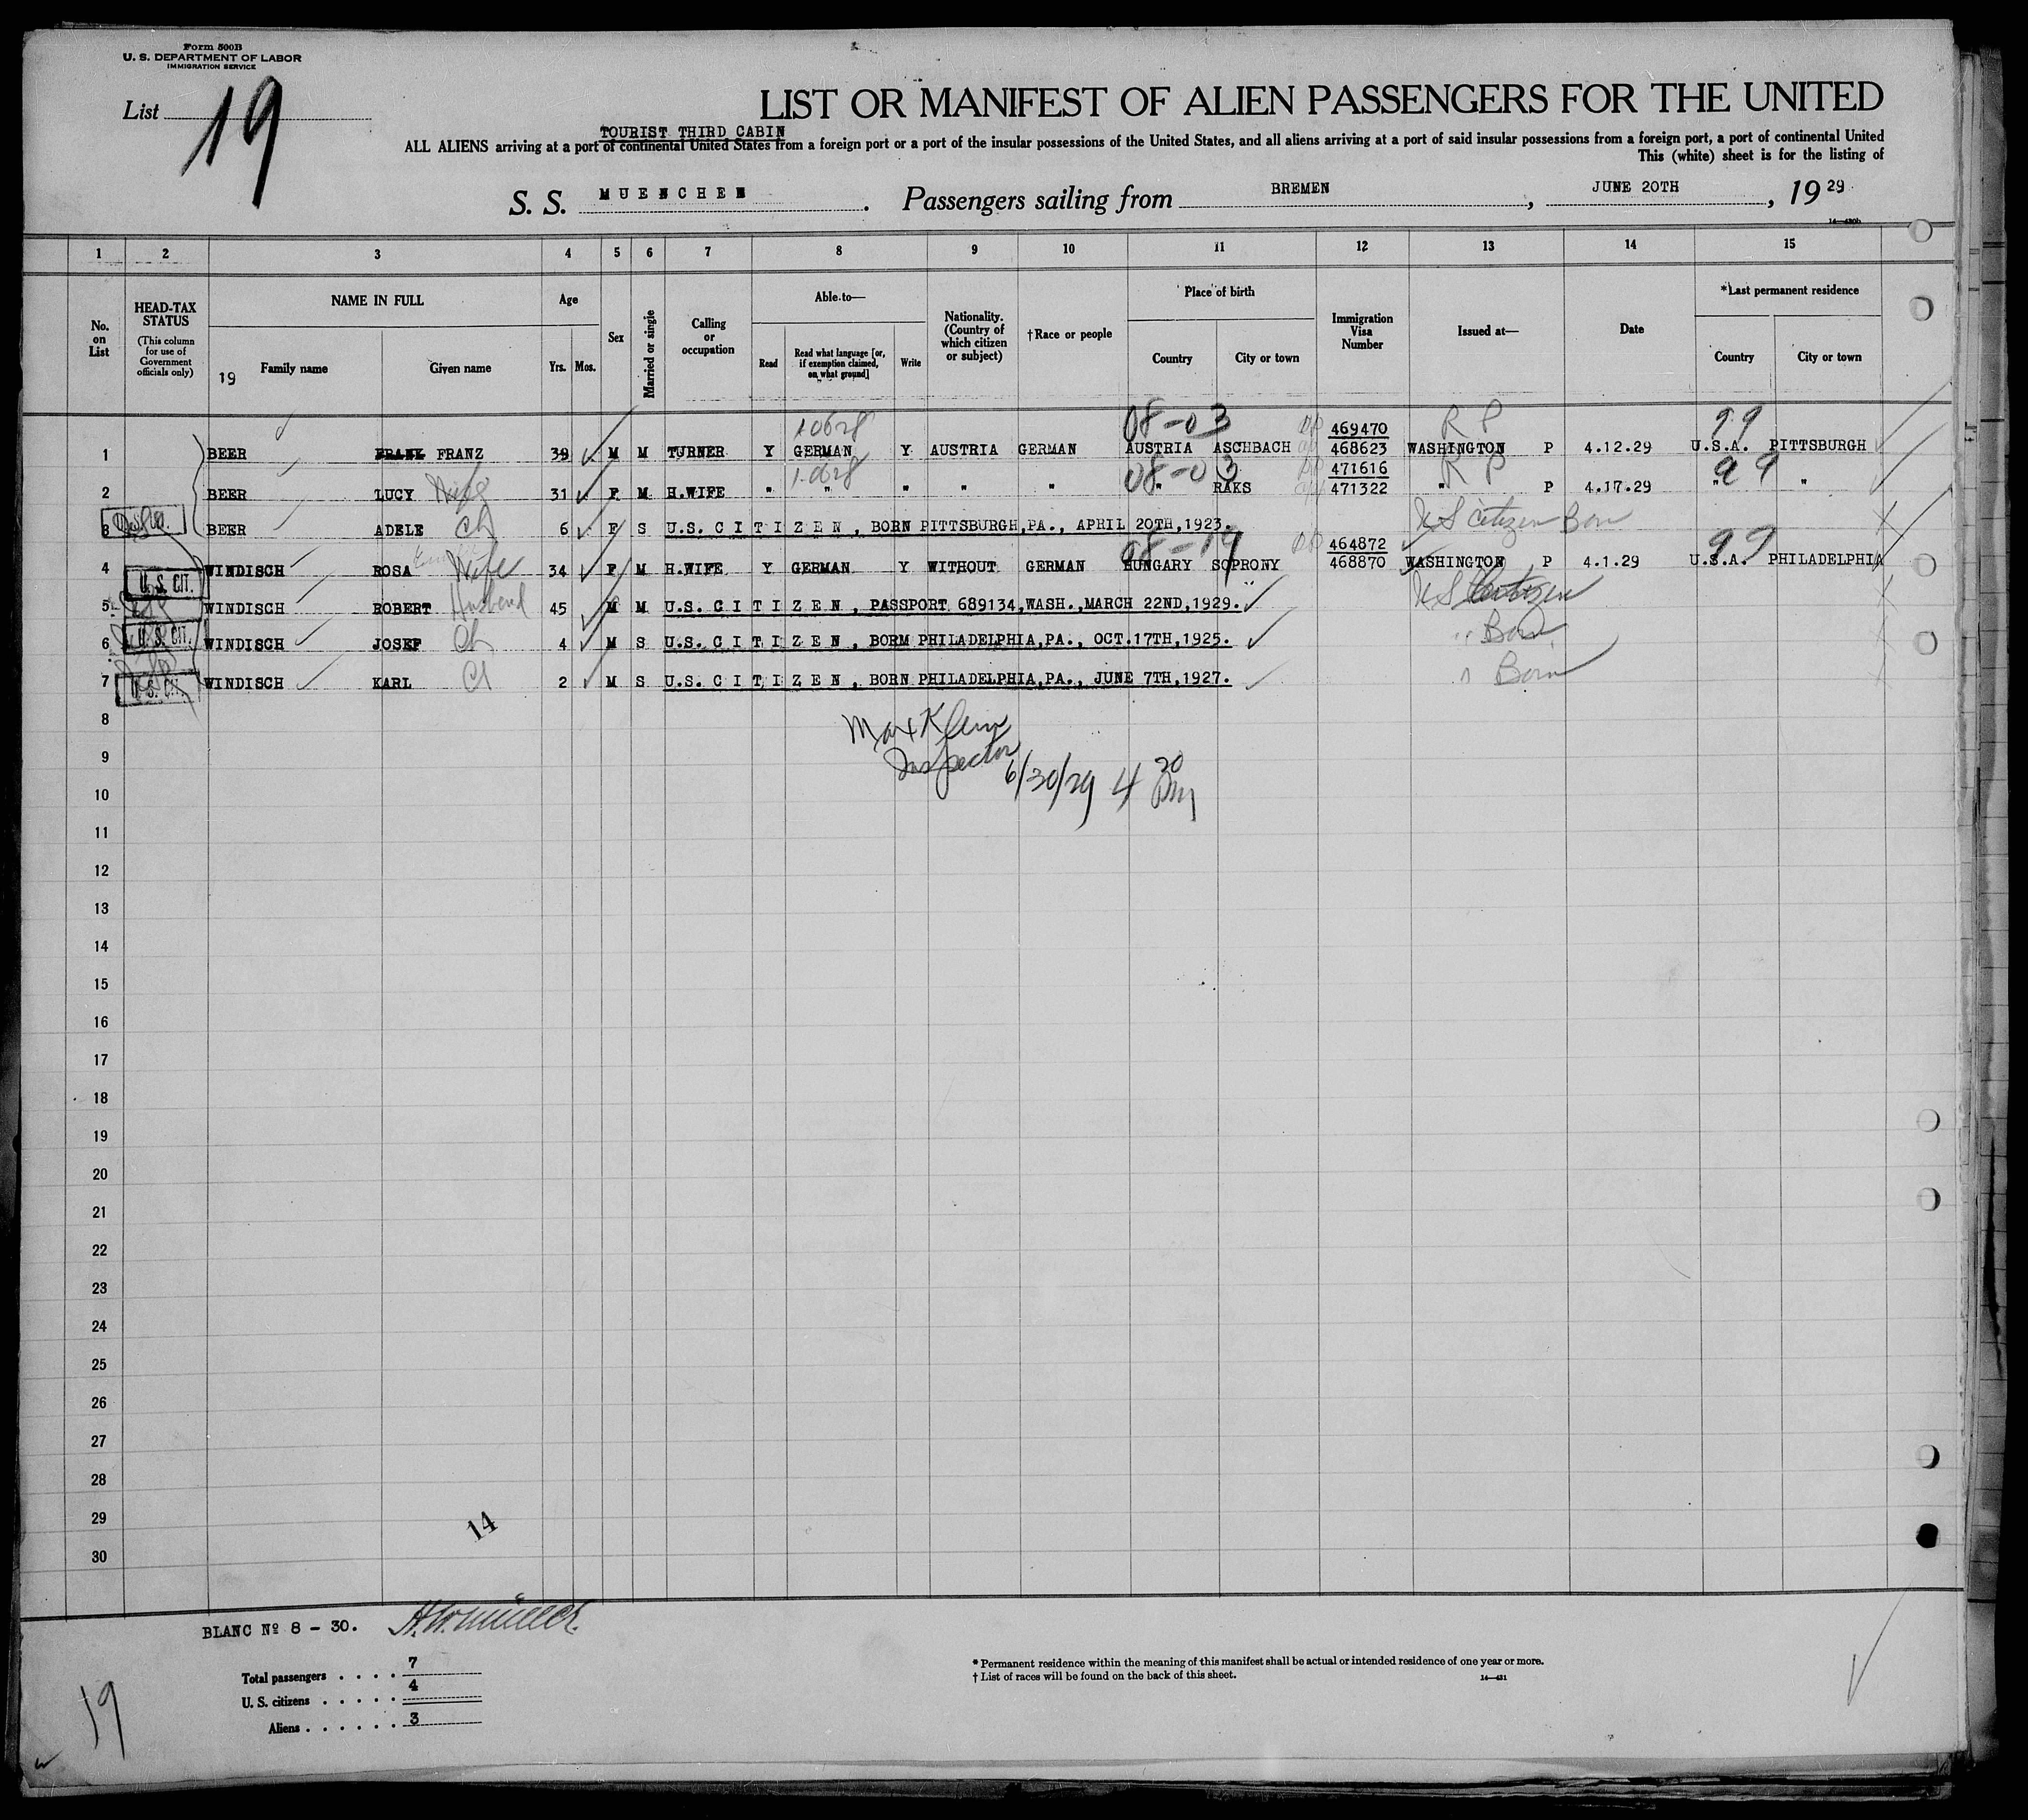 Form 500B
U. S. DEPARTMENT OF LABOR
IMMIGRATION SERVICE
List 19
LIST OR MANIFEST OF ALIEN PASSENGERS FOR THE UNITED
TOURIST THIRD CABIN
ALL ALIENS arriving at a port of continental United States from a foreign port or a port of the insular possessions of the United States, and all aliens arriving at a port of said insular possessions from a foreign port, a port of continental United
This (white) sheet is for the listing of
S. S. MUENCHEN. Passengers sailing from BREMEN, JUNE 20TH, 1929
14—430b
1 2 3 4 5 6 7 8 9 10 11 12 13 14 15
No. on List
HEAD-TAX STATUS
(This column for use of Government officials only)
NAME IN FULL
19 Family name Given name
Age
Yrs. Mos.
Sex
Married or single
Calling or occupation
Able to—
Read
Read what language [or, if exemption claimed, on what ground]
Write
Nationality. (Country of which citizen or subject)
†Race or people
Place of birth
Country City or town
Immigration Visa Number
Issued at—
Date
*Last permanent residence
Country City or town
10628 08-03 469470 R P 99
1 BEER FRANZ 39 M M TURNER Y GERMAN Y AUSTRIA GERMAN AUSTRIA ASCHBACH 468623 WASHINGTON P 4.12.29 U.S.A. PITTSBURGH
10628 08-03 471616 R P 99
2 BEER LUCY Wife 31 F M H.WIFE " " " " " " RAKS 471322 " P 4.17.29 " "
3 BEER ADELE Ch 6 F S U.S. CITIZEN, BORN PITTSBURGH,PA., APRIL 20TH,1923. U S Citizen Born
08-19 464872 99
4 WINDISCH ROSA Wife 34 F M H.WIFE Y GERMAN Y WITHOUT GERMAN HUNGARY SOPRONY 468870 WASHINGTON P 4.1.29 U.S.A. PHILADELPHIA
U. S. CIT.
5 WINDISCH ROBERT Husband 45 M M U.S. CITIZEN, PASSPORT 689134,WASH.,MARCH 22ND,1929. U S Citizen
U. S. CIT.
6 WINDISCH JOSEF Ch 4 M S U.S. CITIZEN, BORM PHILADELPHIA,PA., OCT.17TH,1925. " Born
U. S. CIT.
7 WINDISCH KARL Ch 2 M S U.S. CITIZEN, BORN PHILADELPHIA,PA., JUNE 7TH,1927. " Born
8
Max Klein
9
Inspector
6/30/29 4 20 PM
10
11
12
13
14
15
16
17
18
19
20
21
22
23
24
25
26
27
28
29
14
30
BLANC Nº 8 - 30.
Total passengers . . . . 7
U. S. citizens . . . . . 4
Aliens . . . . . . 3
* Permanent residence within the meaning of this manifest shall be actual or intended residence of one year or more.
† List of races will be found on the back of this sheet.
14—431
19